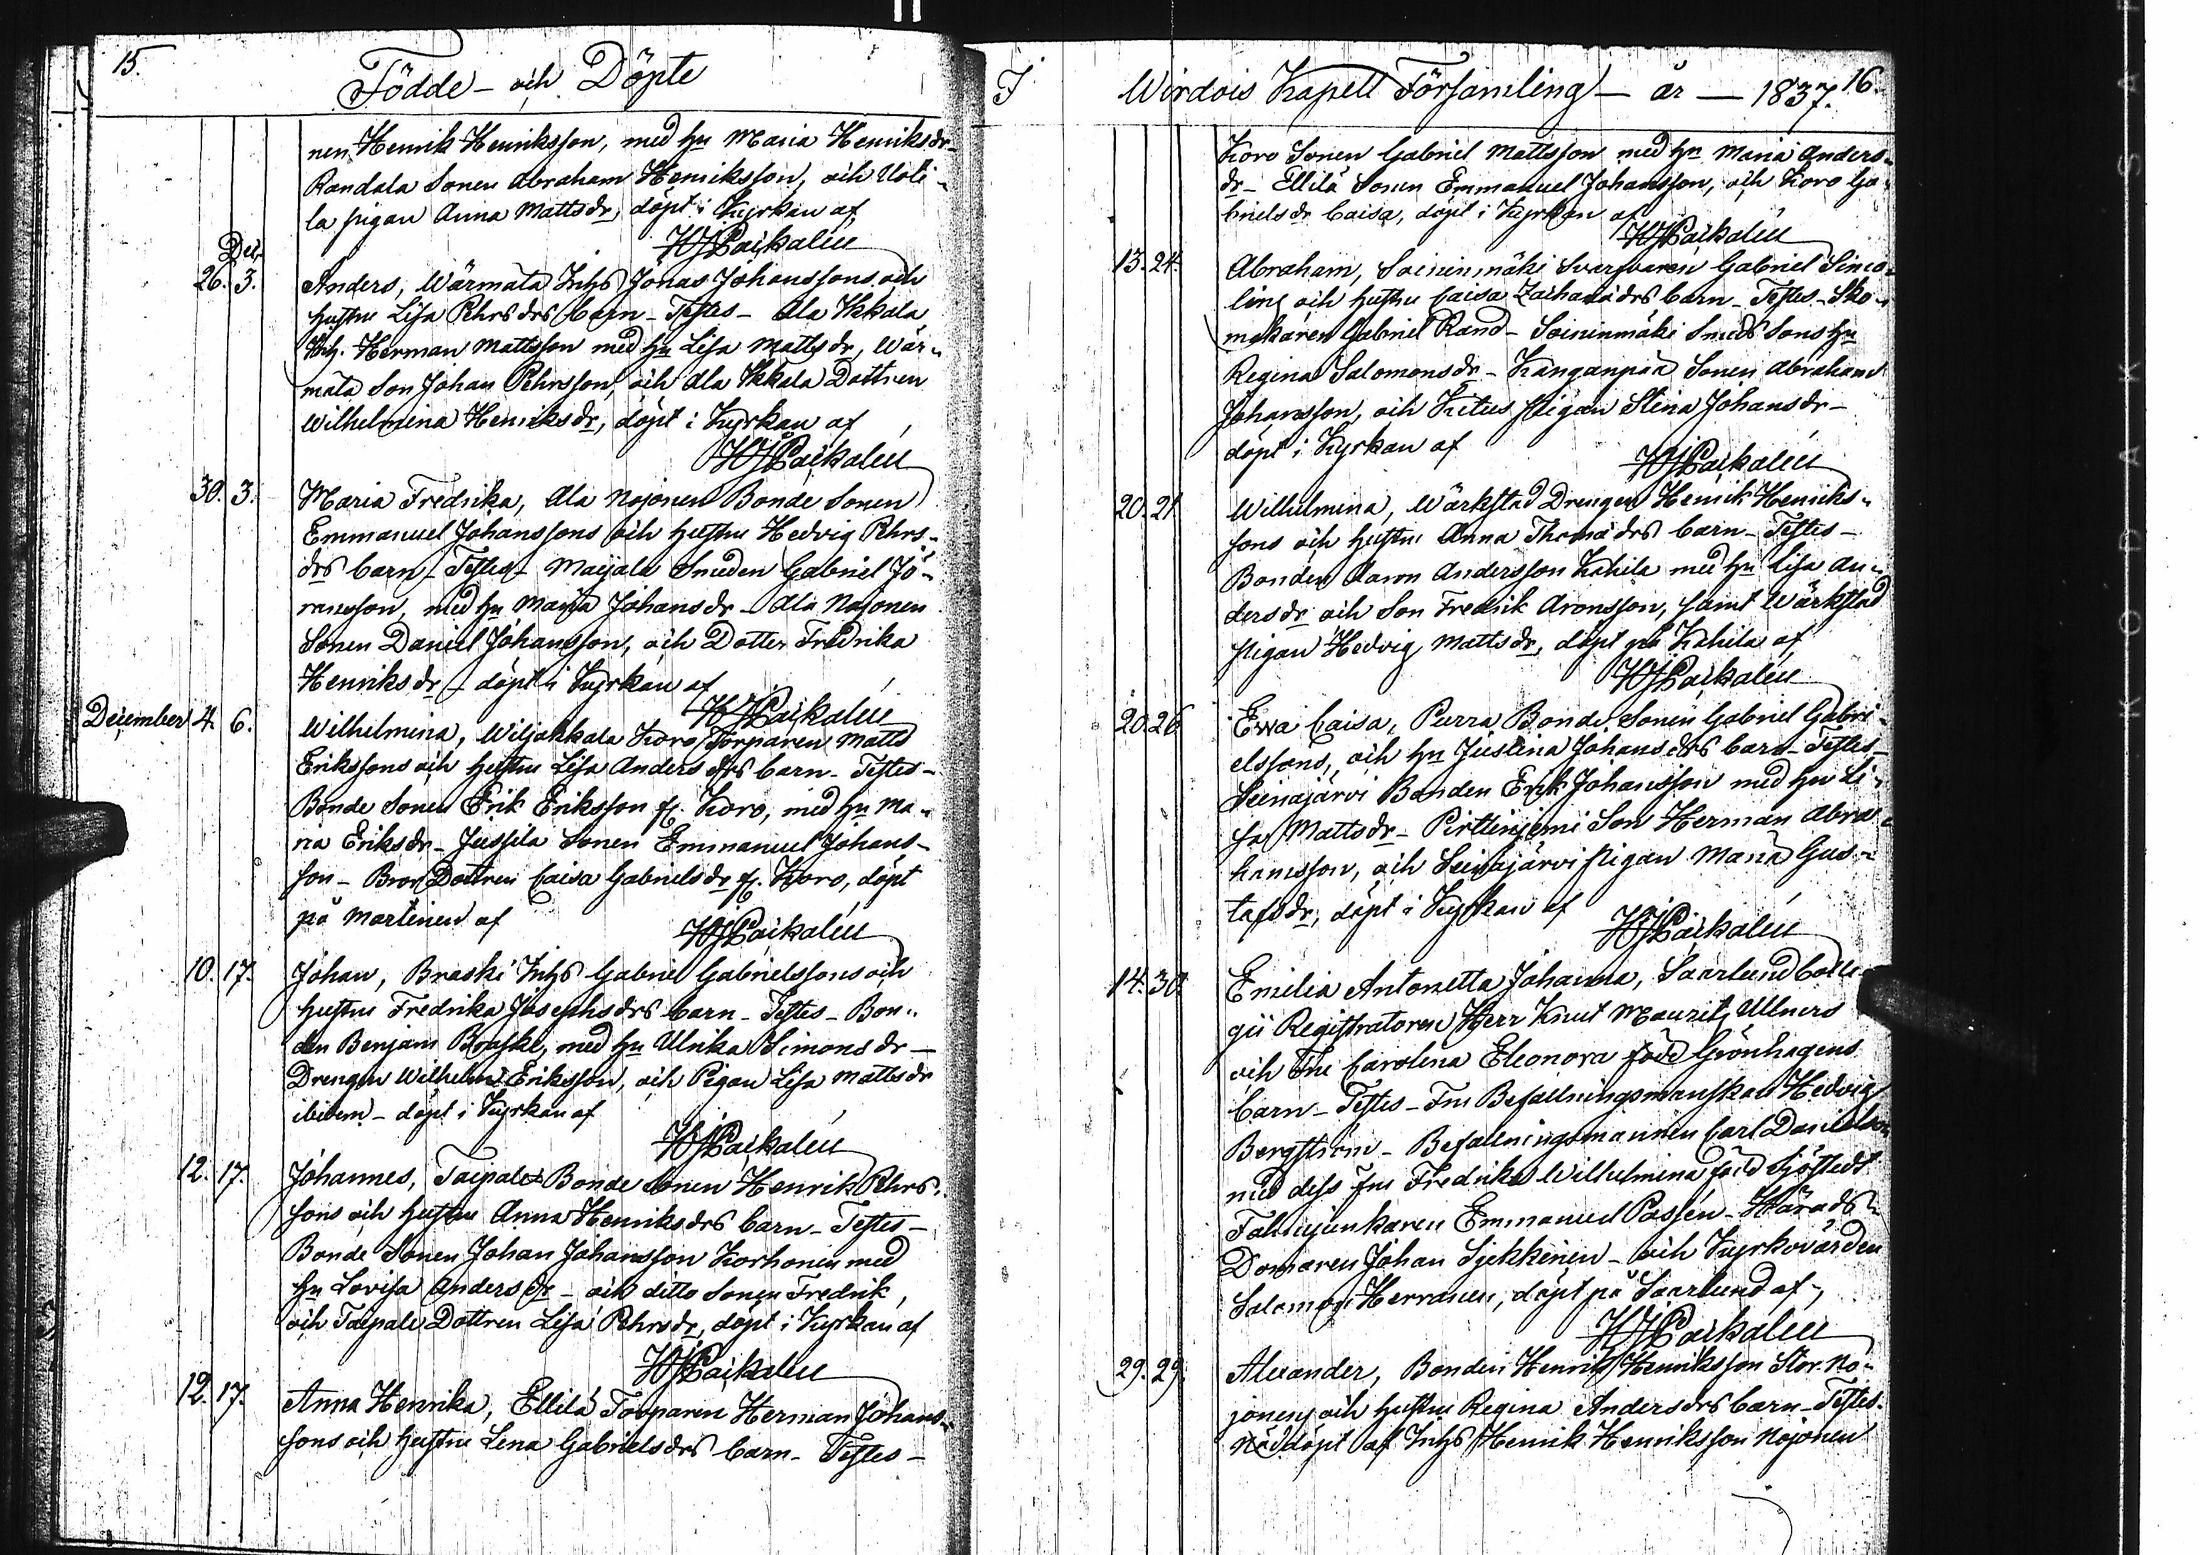 15.
Födde - och Döpte
nen Henrik Henriksson, med hu Maria Henriksdr
Randala Sonen Abraham Henriksson, och Uoti-
la pigan Anna Mattsdr, döpt i Kyrkan af
HJPaikalén
Dec.
26. 3. Anders, Wärmälä Inhs Jonas Johanssons och
hustru Lisa Pehrsdrs barn - Testes - Ala Ikkala
Inh. Herman Mattsson med hu Lisa Mattsdr, Wär-
mälä Son Johan Pehrsson, och Ala Ikkala Dottren
Wilhelmina Henriksdr, döpt i Kyrkan af
HJPaikalén
30. 3. Maria Fredrika, Ala Nojonen Bonde Sonen
Emmanuel Johanssons och hustru Hedvig Pehrs-
drs barn - Testes - Maijala Smeden Gabriel Jö-
ransson, med hu Maja Johansdr - Ala Nojonen
Sonen Daniel Johansson, och Dotter Fredrika
Henriksdr - döpt i Kyrkan af
HJPaikalén
December 4. 6. Wilhelmina, Wiljakkala Koro Torparen Matts
Erikssons och hustru Lisa Andersdrs barn - Testes -
Bonde Sonen Erik Eriksson fr. Koro, med hu Ma-
ria Eriksdr - Jussila Sonen Emmanuel Johans-
son - Bror Dottren Caisa Gabrielsdr fr. Koro, döpt
på Martinen af
HJPaikalén
10. 17. Johan, Braski Inhs Gabriel Gabrielssons och
hustru Fredrika Josephsdrs barn - Testes - Bon-
den Benjam Braski, med hu Ulrika Simonsdr -
Drengen Wilhelm Eriksson, och Pigan Lisa Mattsdr
ibidem - döpt i Kyrkan af
HJPaikalén
12. 17. Johannes, Taipale Bonde Sonen Henrik Pehrs-
sons och hustru Anna Henriksdrs barn - Testes -
Bonde Sonen Johan Johansson Korhonen med
hu Lovisa Andersdr - och ditto Sonen Fredrik,
och Taipale Dottren Lisa Pehrsdr, döpt i Kyrkan af
HJPaikalén
12. 17. Anna Henrika, Ellilä Torparen Herman Johans-
sons och hustru Lena Gabrielsdrs barn - Testes -
I Wirdois Kapell Församling - år - 1837. 16.
Koro Sonen Gabriel Mattsson med hu Maria Anders-
dr - Ellilä Sonen Emmanuel Johansson, och Koro Ga-
brielsdr Caisa, döpt i Kyrkan af
HJPaikalén
13. 24. Abraham, Soininmäki Svarfvaren Gabriel Simo-
lins och hustru Caisa Zachariädrs barn - Testes - Sko-
makaren Gabriel Rand - Soininmäki Smeds Sons hu
Regina Salomonsdr - Kanganpää Sonen Abraham
Johansson, och Kitus Pigan Stina Johansdr -
döpt i Kyrkan af
HJPaikalén
20. 21. Wilhelmina, Wärkstad Drengen Henrik Henriks-
sons och hustru Anna Thomädrs barn - Testes -
Bonden Aaron Andersson Kahila med hu Lisa An-
dersdr och Son Fredrik Aronsson, samt Wärkstad
pigan Hedvig Mattsdr, döpt på Kahila af
HJPaikalén
20. 26. Ewa Caisa, Purra Bonde Sonen Gabriel Gabri-
elssons, och hu Justina Johansdrs barn - Testes -
Seinäjärvi Bonden Erik Johansson med hu Li-
sa Mattsdr - Pirttiniemi Son Herman Abra-
hamsson, och Seinäjärvi Pigan Maria Gus-
tafsdr, döpt i Kyrkan af
HJPaikalén
14. 30. Emilia Antonetta Johanna, Saarlund Colle-
gii Registratoren Herr Knut Maurits Ullners
och Fru Carolina Eleonora född Grönhagens
barn - Testes - Fru Befallningsmanskan Hedvig
Bergström - Befallningsmannen Carl Danielsson
med dess Fru Fredrika Wilhelmina född Sjöstedt
Fältjunkaren Emmanuel Passén - Härads-
Domaren Johan Sjekkinen - och Kyrkovärden
Salomon Herranen, döpt på Saarlund af
HJPaikalén
29. 29. Alexander, Bonden Henrik Henriksson Stor No-
jonens och hustru Regina Andersdrs barn - Testes.
Nöddöpt af Inhs Henrik Henriksson Nojonen